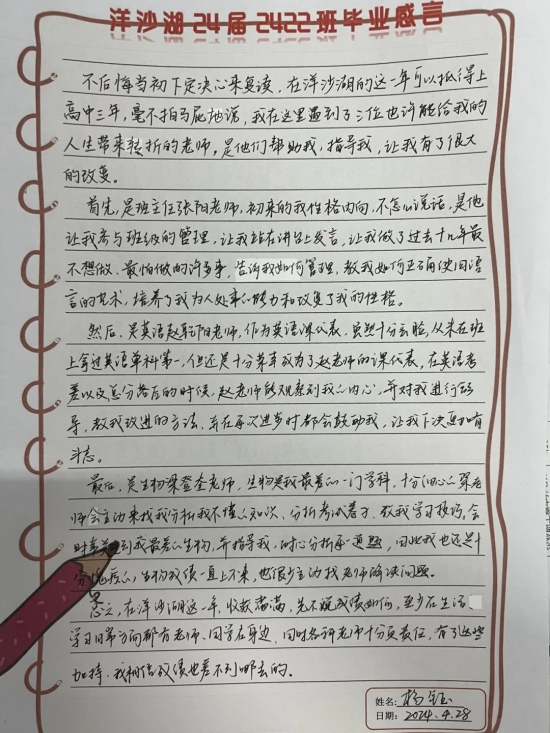 洋沙湖24届2422班毕业感言
不后悔当初下定决心来复读，在洋沙湖的这一年可以抵得上
高中三年，毫不拍马屁地说，我在这里遇到了三位也许能给我的
人生带来转折的老师，是他们帮助我，指导我，让我有了很大
的改变。
首先，是班主任张阳老师，初来的我性格内向，不怎么说话，是他
让我参与班级的管理，让我站在讲台上发言，让我做了过去十几年最
不想做、最怕做的许多事，告诉我如何管理，教我如何正确使用语
言的艺术，培养了我为人处事的能力和改变了我的性格。
然后，是英语赵东阳老师，作为英语课代表，虽然十分丢脸，从未在班
上拿过英语单科第一，但还是十分荣幸成为了赵老师的课代表，在英语考
差以及总分落后的时候，赵老师能观察到我的内心，并对我进行引
导，教我改进的方法，并在再次进步时都会鼓励我，让我下决更加有
斗志。
最后，是生物梁登奎老师，生物是我最差的一门学科，十分细心的梁老
师会主动来找我分析我不懂的知识，分析考试卷子，教我学习技巧，会
时常关到我最差的生物，并指导我，耐心分析每一道题，因此我也还是十
分愧疚的，生物成绩一直上不来，也很少主动找老师解决问题。
总之，在洋沙湖这一年，收获满满，先不说成绩如何，至少在生活、
学习日常方面都有老师、同学在身边，同时各科老师十分负责任，有了这些
加持，我相信成绩也差不到哪去的。
姓名：杨钰
日期：2024.4.28